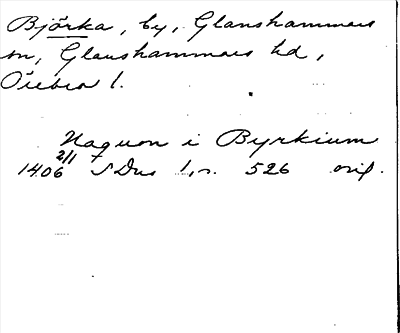 Björka, by, Glanshammars
sn, Glanshammars hd,
Örebro l.
Haquon i Byrkium
1406 2/1 SDns 1, n. 526 orig.